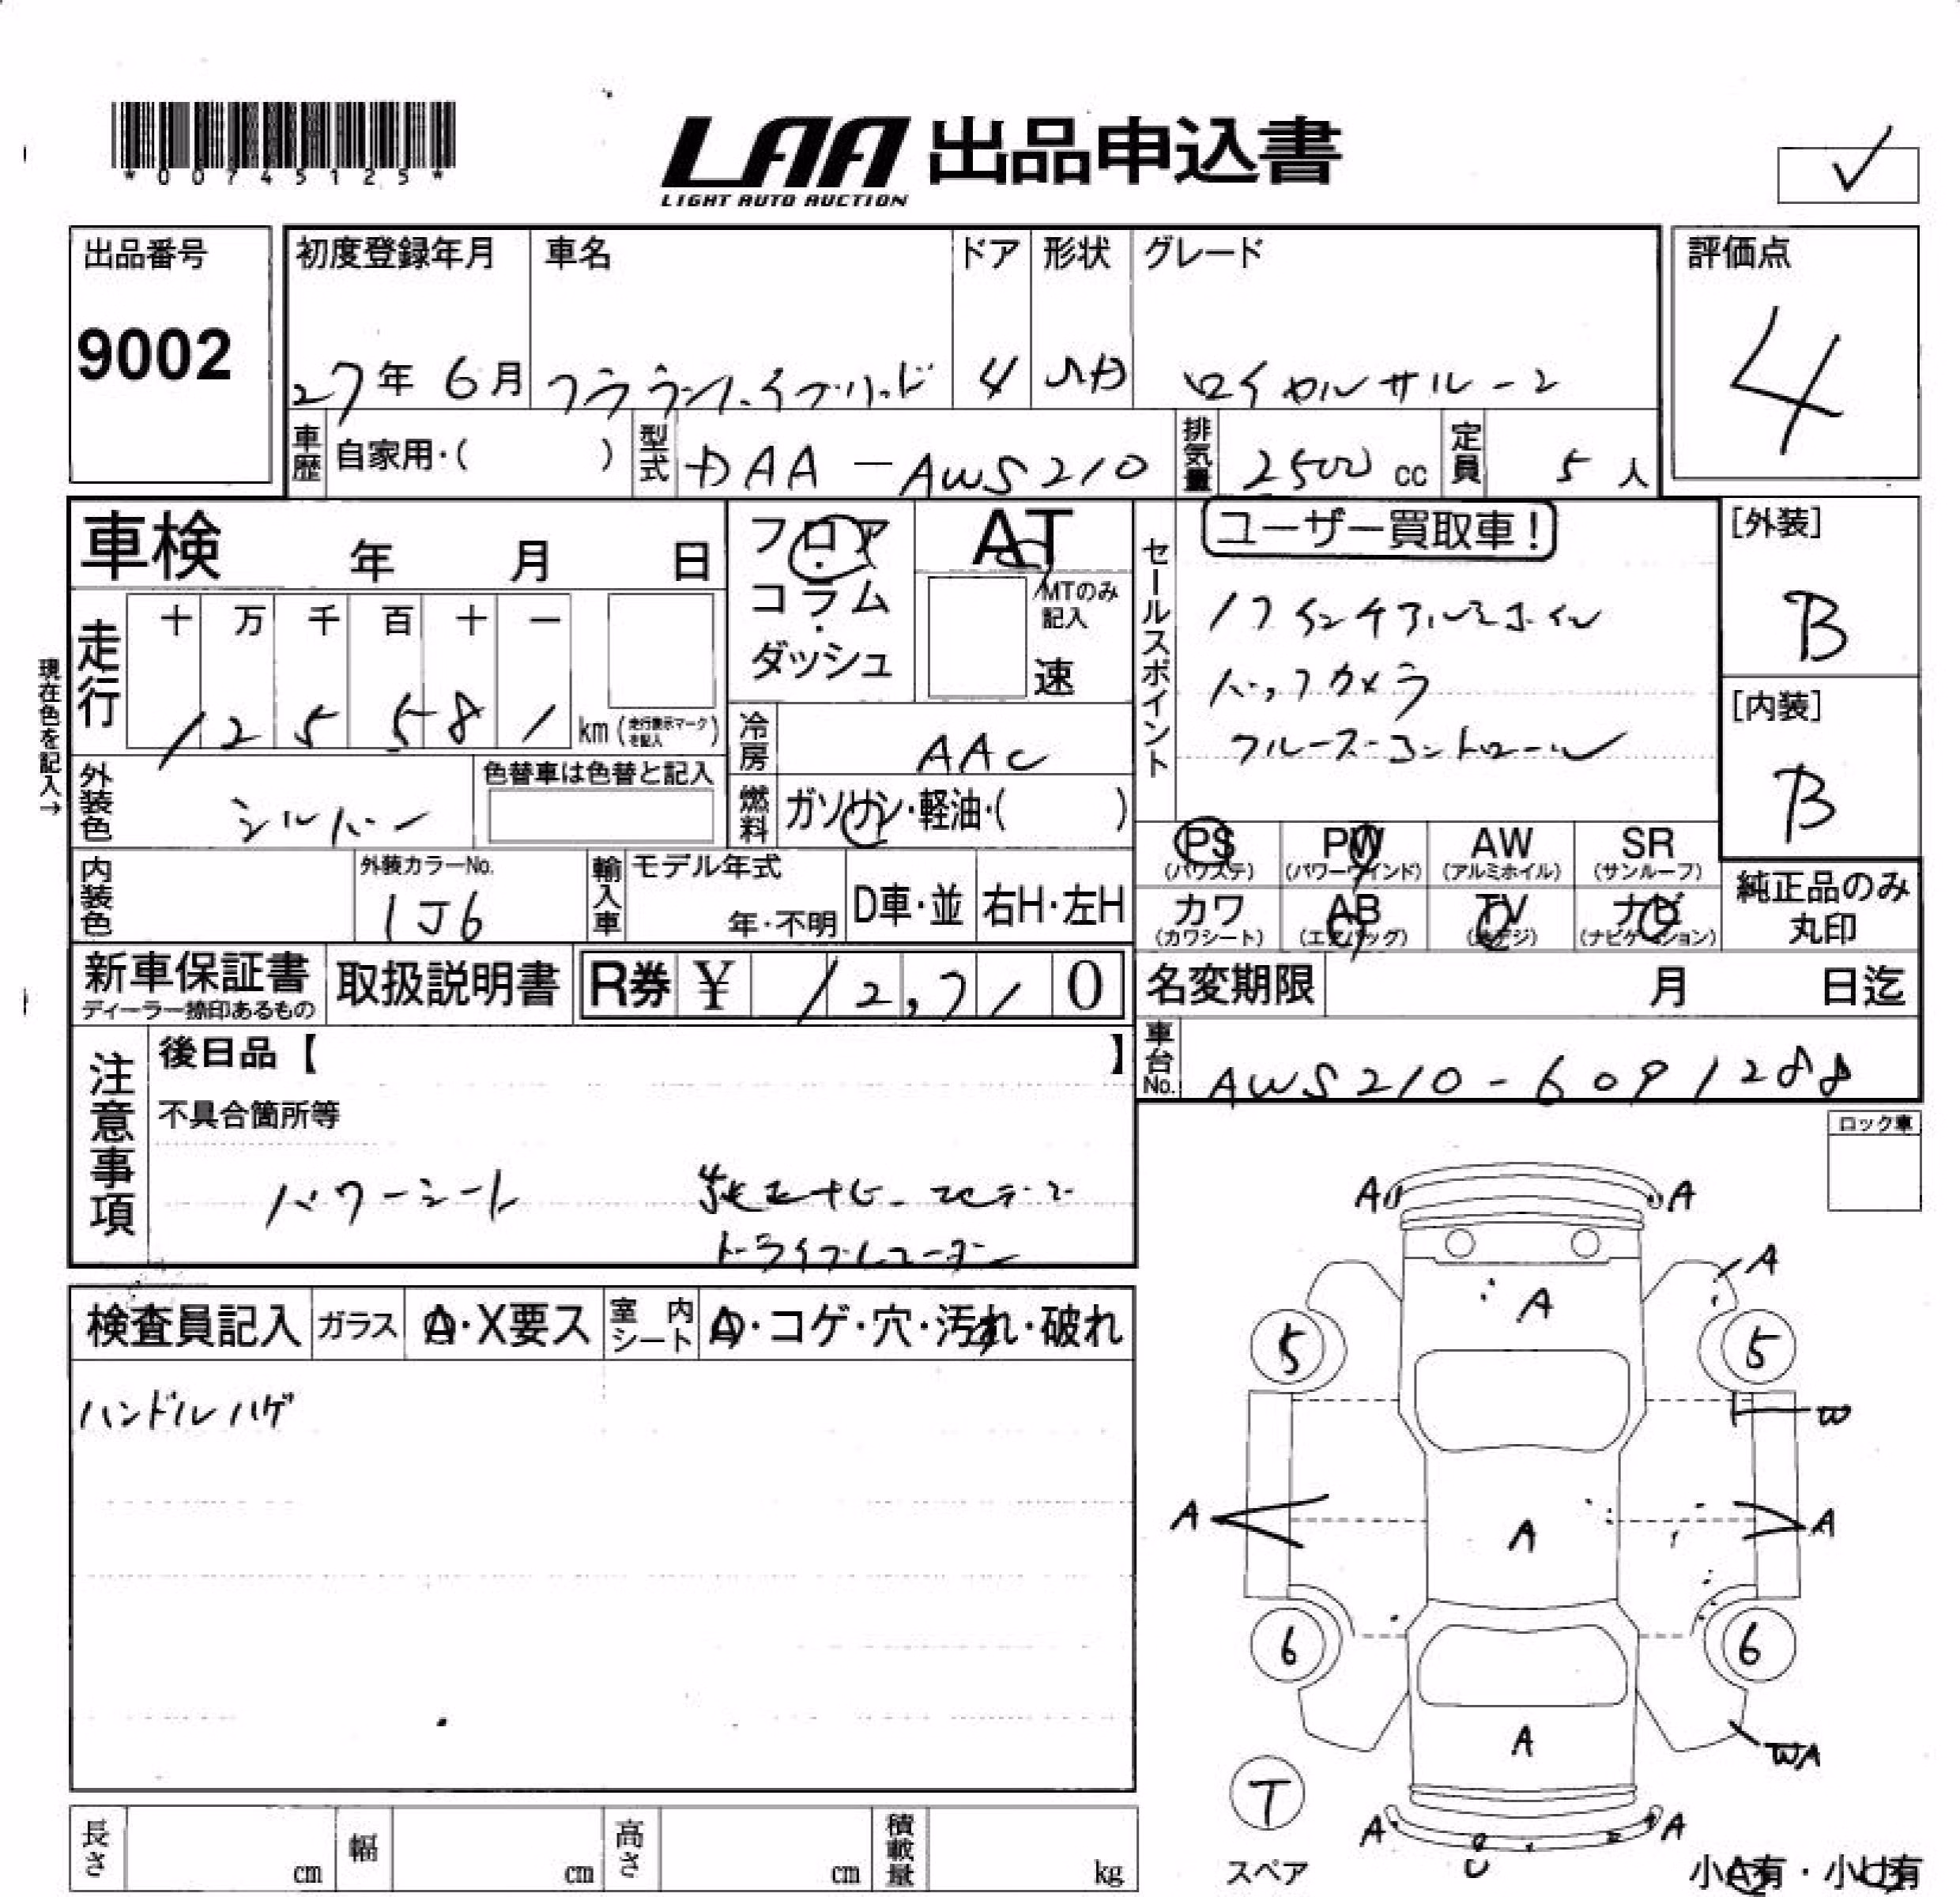 *00745125*
LAA 出品申込書
LIGHT AUTO AUCTION
✓
出品番号
9002
初度登録年月
27年 6月
車名
クラウンハイブリッド
ドア
4
形状
グレード
ロイヤルサルーン
評価点
4
車歴
自家用・( )
型式
DAA-AWS210
排気量
2500 cc
定員
5 人
車検 年 月 日
フロア
・
コラム
・
ダッシュ
AT
MTのみ
記入
速
現在色を記入→
走行
十 万 千 百 十 一
1 2 5 5 8 1 km (走行表示マークを記入)
冷房
AAC
外装色
シルバー
色替車は色替と記入
燃料
ガソリン・軽油・( )
内装色
外装カラーNo.
1J6
輸入車
モデル年式
年・不明
D車・並
右H・左H
セールスポイント
ユーザー買取車!
17インチアルミホイル
バックカメラ
クルーズコントロール
[外装]
B
[内装]
B
PS
(パワステ)
PW
(パワーウインド)
AW
(アルミホイル)
SR
(サンルーフ)
カワ
(カワシート)
AB
(エアバッグ)
TV
(テレビジ)
ナビ
(ナビゲーション)
純正品のみ
丸印
新車保証書
ディーラー捺印あるもの
取扱説明書
R券 ¥ 12,710
名変期限 月 日迄
車台No.
AWS210-6091288
注意事項
後日品【 】
不具合箇所等
パワーシート 純正ナビ
ドライブレコーダー
ロック車
検査員記入
ガラス
A・X要ス
室内シート
A・コゲ・穴・汚れ・破れ
ハンドルハゲ
A A
A
A
5 5
W
A A A
6 6
A
WA
T
スペア
A A
U
小A有・小U有
長さ cm
幅 cm
高さ cm
積載量 kg